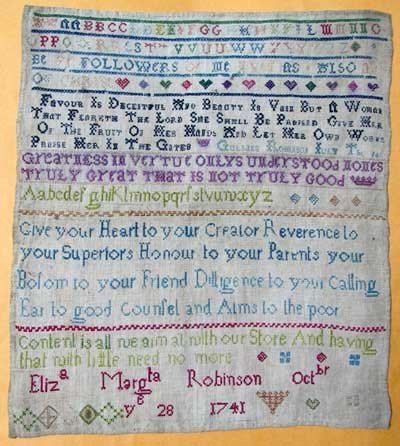 AA BB CC
FOLLOWERS OF ME AS ALSO
FAVOUR IS DECEITFUL AND BEAUTY IS VAIN BUT A WOMAN
THAT FEARETH THE LORD SHE SHALL BE PRAISED GIVE HER
OF THE FRUIT OF HER HANDS AND LET HER OWN WORKS
PRAISE HER IN THE GATES ROBINSON JULY THE
GREATNESS IN VERTUE ONLYS UNDERSTOOD NONES
TRULY GREAT THAT IS NOT TRULY GOOD
Aabcdef ghiklmnopqrſstvuwxyz
Give your Heart to your Creator Reverence to
your Superiors Honour to your Parents your
Bosom to your Friend Dilligence to your Calling
Ear to good Counſel and Alms to the poor
Content is all we aim at with our Store And having
that with little need no more
Eliza Margta Robinson Octbr
ye 28 1741